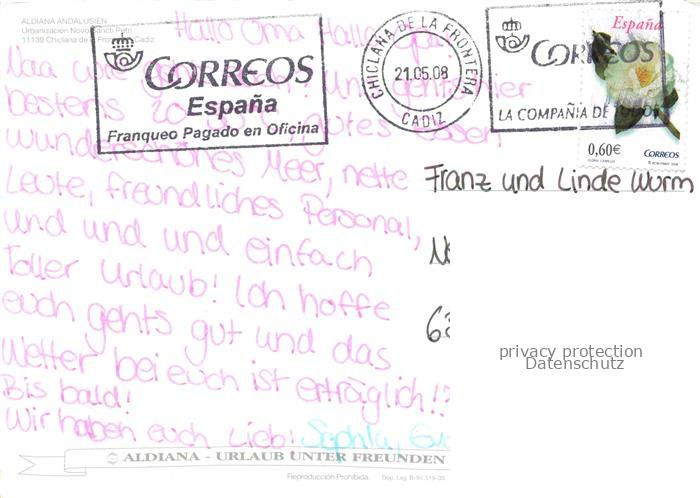 ALDIANA ANDALUSIEN
Urbanización Novo Sancti Petri
11139 Chiclana de la Frontera Cádiz
Hallo Oma Hallo Opa
CORREOS
España
Franqueo Pagado en Oficina
CHICLANA DE LA FRONTERA
21.05.08
CADIZ
CORREOS
LA COMPAÑIA DE TODOS
España
0,60€
CORREOS
Naa wie
bestens 20 gutes essen
wunderschönes Meer, nette
Leute, freundliches Personal,
und und und einfach
Toller Urlaub! Ich hoffe
euch gehts gut und das
Wetter bei euch ist erträglich!?
Bis bald!
Wir haben euch Lieb! Sophia,
Franz und Linde Wurm
privacy protection
Datenschutz
ALDIANA - URLAUB UNTER FREUNDEN
Reproducción Prohibida